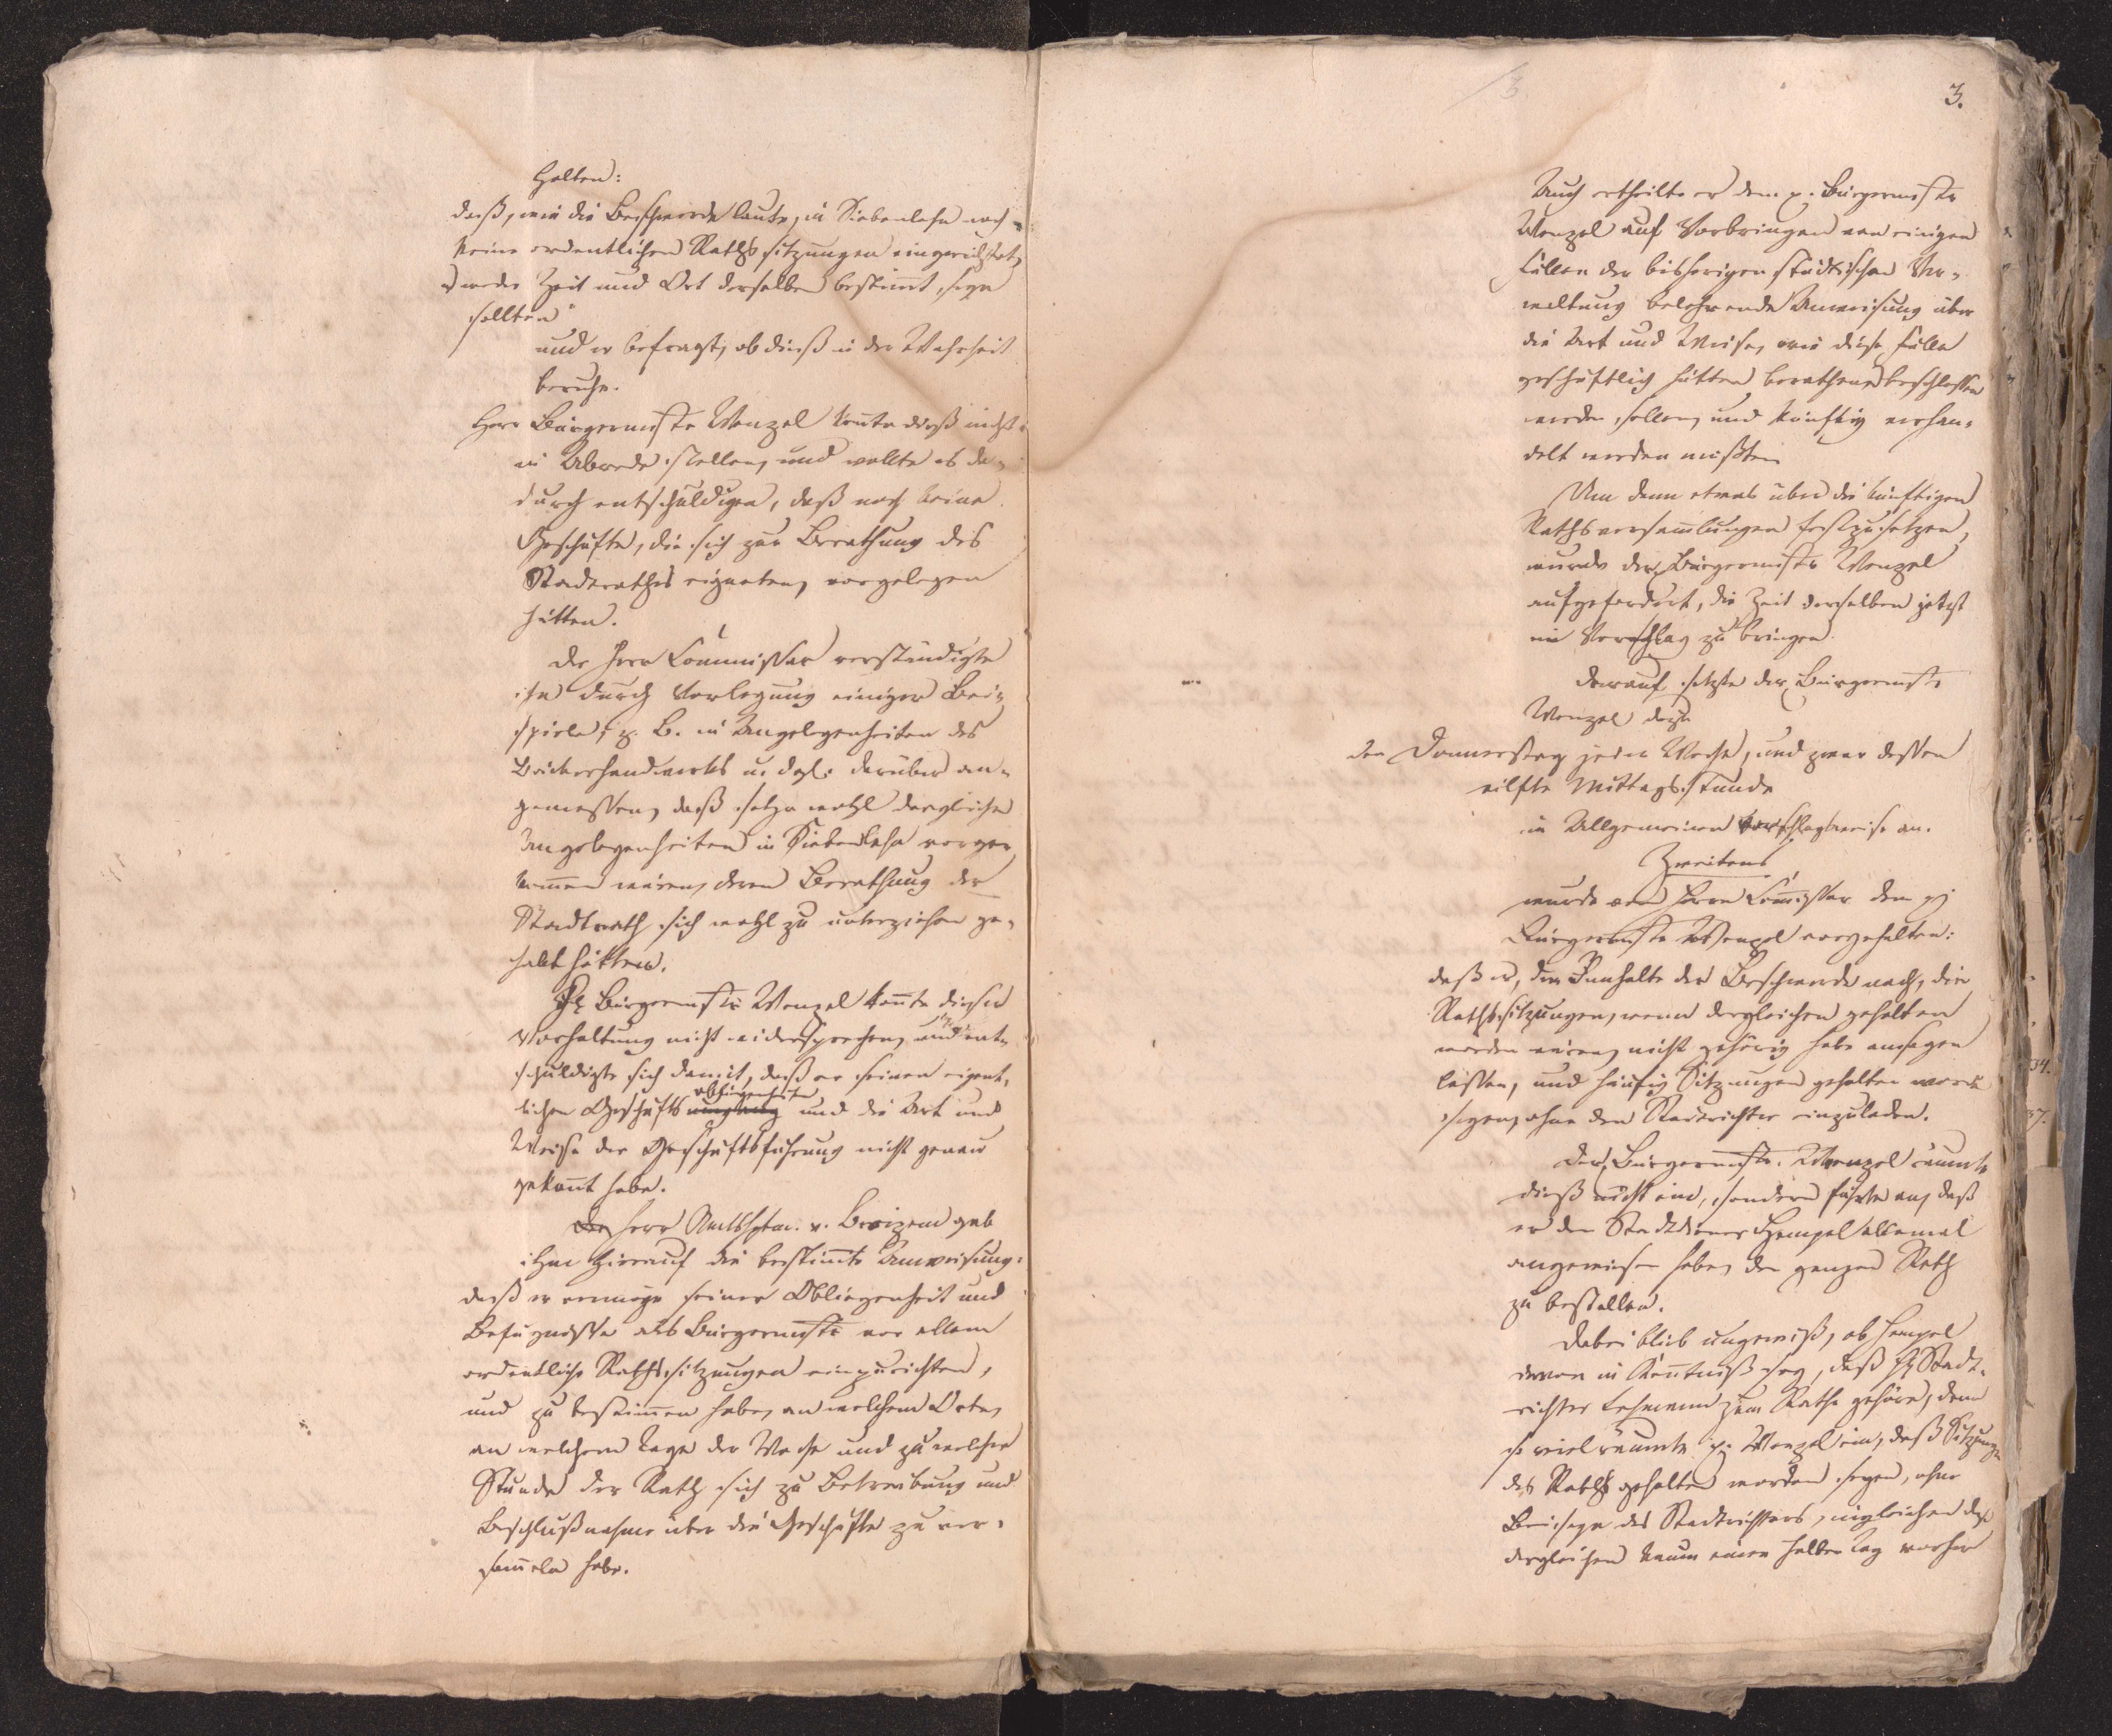 halten:
daß, wie die Beschwerde laute, in Siebenlehn noch
keine ordentlichen Rathssitzungen eingerichtet,
weder Zeit und Ort derselben bestimt, seyn
sollten
und er befragt, ob dieß in der Wahrheit
beruhe.
Herr Bürgermstr Wenzel konte dieß nicht
in Abrede stellen, und wollte es da-
durch entschuldigen, daß noch keine
Geschäfte, die sich zur Berathung des
Stadtrathes eigneten, vorgelegen
hätten.
Der Herr Commissar verständigte
ihn durch Vorlegung einiger Bei-
spiele, z. B. in Angelegenheiten des
Bäckerhandwerks u. dgl. darüber an-
gemessen, daß wohl dergleichen
Angelegenheiten in Siebenlehn vorge-
kommen wären, deren Berathung der
Stadtrath sich wohl zu unterziehen ge-
habt hätten.
H Bürgermstr Wenzel konte dieser
Vorhaltung nicht widersprechen, und ent-
schuldigte sich damit, daß er seinen eigent-
obliegenheiten
lichen Geschäfts und die Art und
Weise der Geschäftsführung nicht genau
gekant habe.
Der Herr Amtshptm. v. gab
ihm hierauf die bestimte Anweisung:
daß er vermöge seiner Obliegenheit und
Befugnisse als Bürgermstr vor allem
ordentliche Rathssitzungen einzurichten,
und zu bestimen habe, an welchem Orte,
an welchem Tage der Woche und zu welcher
Stunde der Rath sich zu Betreibung und
Beschlußnahme über die Geschäfte zu ver-
sameln habe.
3.
Auch ertheilte er dem p. Bürgermstr
Wenzel auf Vorbringen von einigen
Fällen der bisherigen städtischen Ver-
waltung belehrende Anweisung über
die Art und Weise, wie diese Fälle
geschäftlich hätten berathen, beschlossen
werden sollen, und künftig verhan-
delt werden müßten.
Um dann etwas über die künftigen
Rathsversamlungen festzusetzen,
wurde der Bürgermstr Wenzel
aufgefordert, die Zeit derselben jetzt
in Vorschlag zu bringen.
Darauf setzte der Bürgermstr
Wenzel dazu
den Donnerstag jeder Woche, und zwar dessen
eilfte Mittagsstunde
im Allgemeinen vorschlagsweise an.
Zweitens
wurde von Herrn Comissar dem p
Bürgermstr Wenzel vorgehalten:
daß er, dem Innhalte der Beschwerde nach, die
Rathssitzungen, wenn dergleichen gehalten
worden wären, nicht gehörig habe ansagen
lassen, und häufig Sitzungen gehalten worden
seyen, ohne den Stadtrichter einzuladen.
Der Bürgermstr. Wenzel räumte
dieß nicht ein, sondern führte an, daß
er den Stadtdiener Hempel allemal
angewiesen habe, den ganzen Rath
zu bestellen.
Dabei blieb ungewiß, ob Hempel
davon in Kentniß sey, daß H Stadt-
richter Lehmann zum Rathe gehöre, denn
so viel räumte p. Wenzel ein, daß Sitzungen
des Raths gehalten worden seyen, ohne
Beiseyn des Stadtrichters, ingleichen daß
dergleichen kaum einen halben Tag vorher